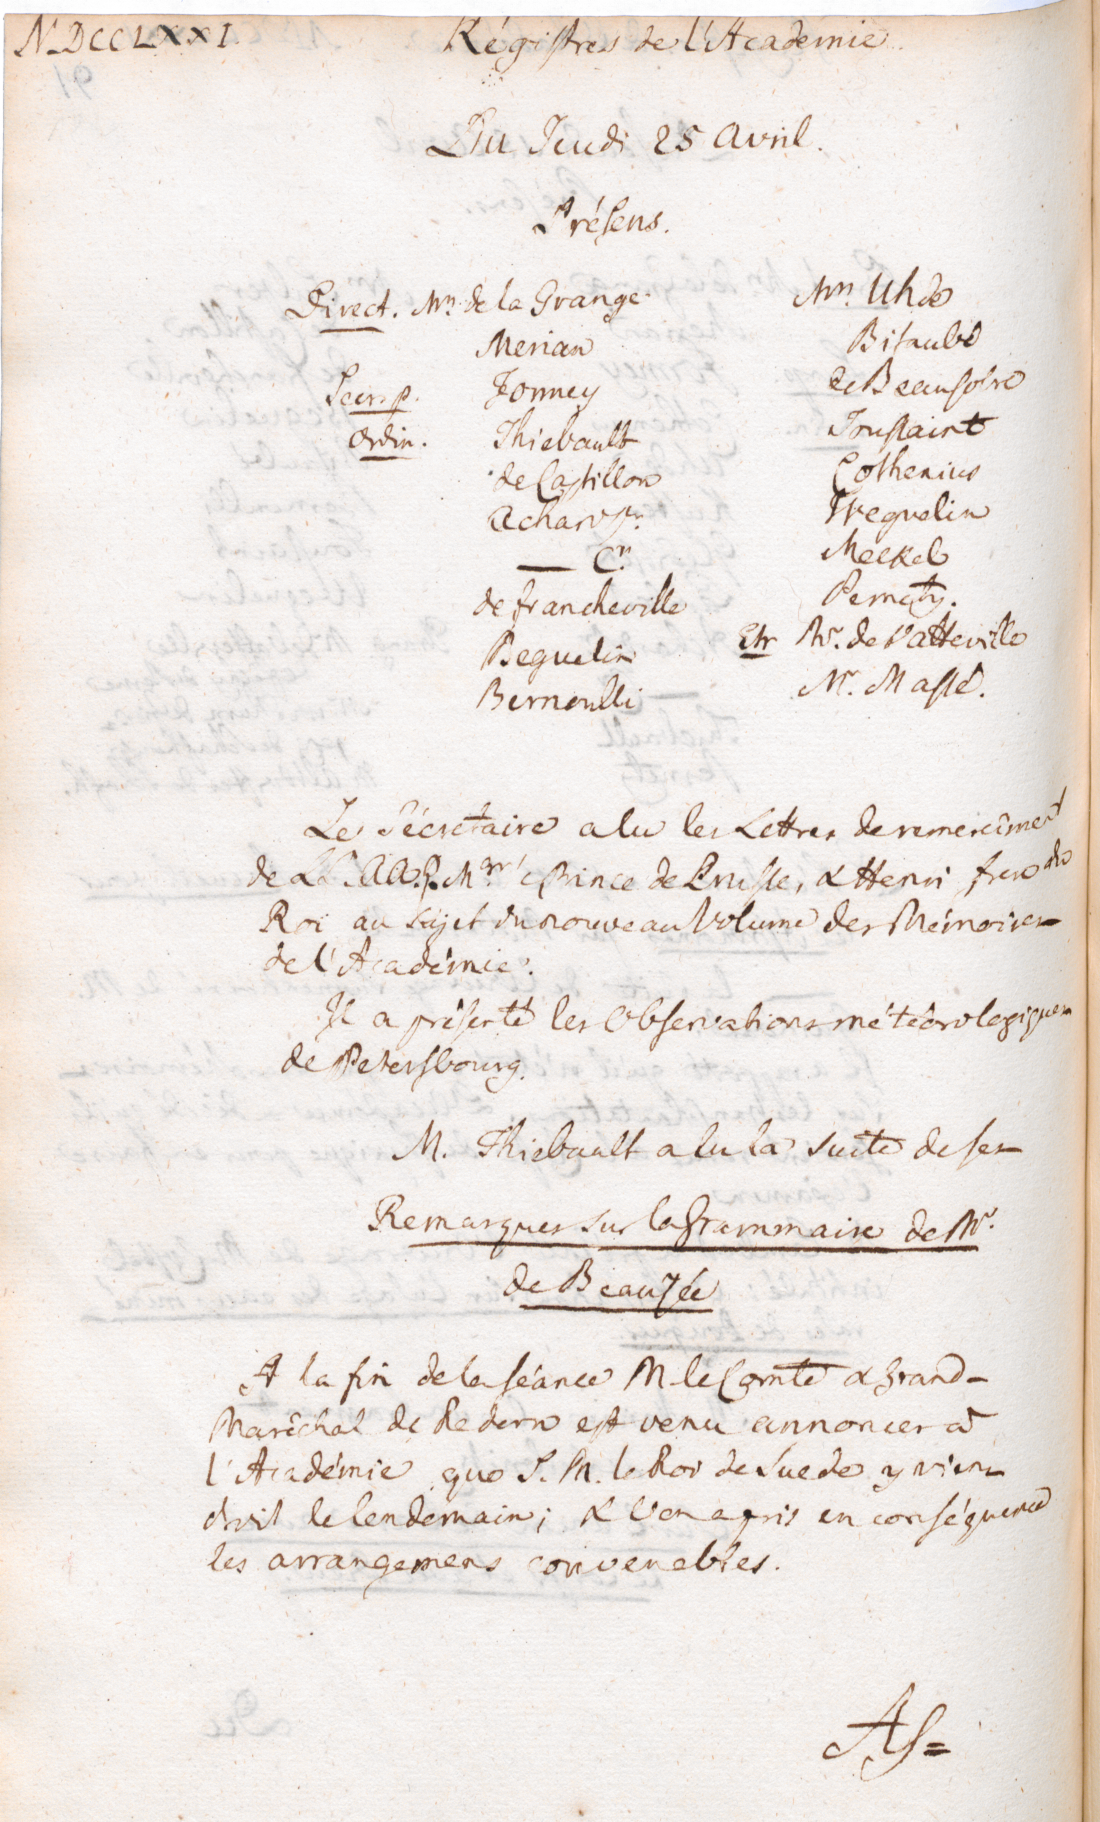 MDCCLXXI.
Régistres de l'Académie.
Du Jeudi 25 Avril.
Présens.
Direct. Mrs. de la Grange
Merian
Secr. p. Formey
Ordin. Thiebault
de Castillon
Achard Pr.
— Cr.
de Francheville
Beguelin
Bernoulli
Mrs. Uhde
Bitaubé
de Beausobre
Toussaint
Cothenius
Weguelin
Meckel
Pernety.
Etr. Mr. de Vatteville
Mr. Massé.
Le Sécretaire a lu les Lettres de remerciment
de LL. AA. R. Mgr. le Prince de Prusse, & Henri frere du
Roi au sujet du nouveau Volume des Mémoires
de l'Académie.
Il a présenté les Observations météorologiques
de Petersbourg.
M. Thiebault a lu la suite de ses
Remarques sur la Grammaire de Mr.
de Beauzée
A la fin de la séance M. le Comte & Grand-
Maréchal de Redern est venu annoncer à
l'Académie que S. M. le Roi de Suede y vien-
droit le lendemain; & l'on a pris en conséquence
les arrangemens convenables.
As=